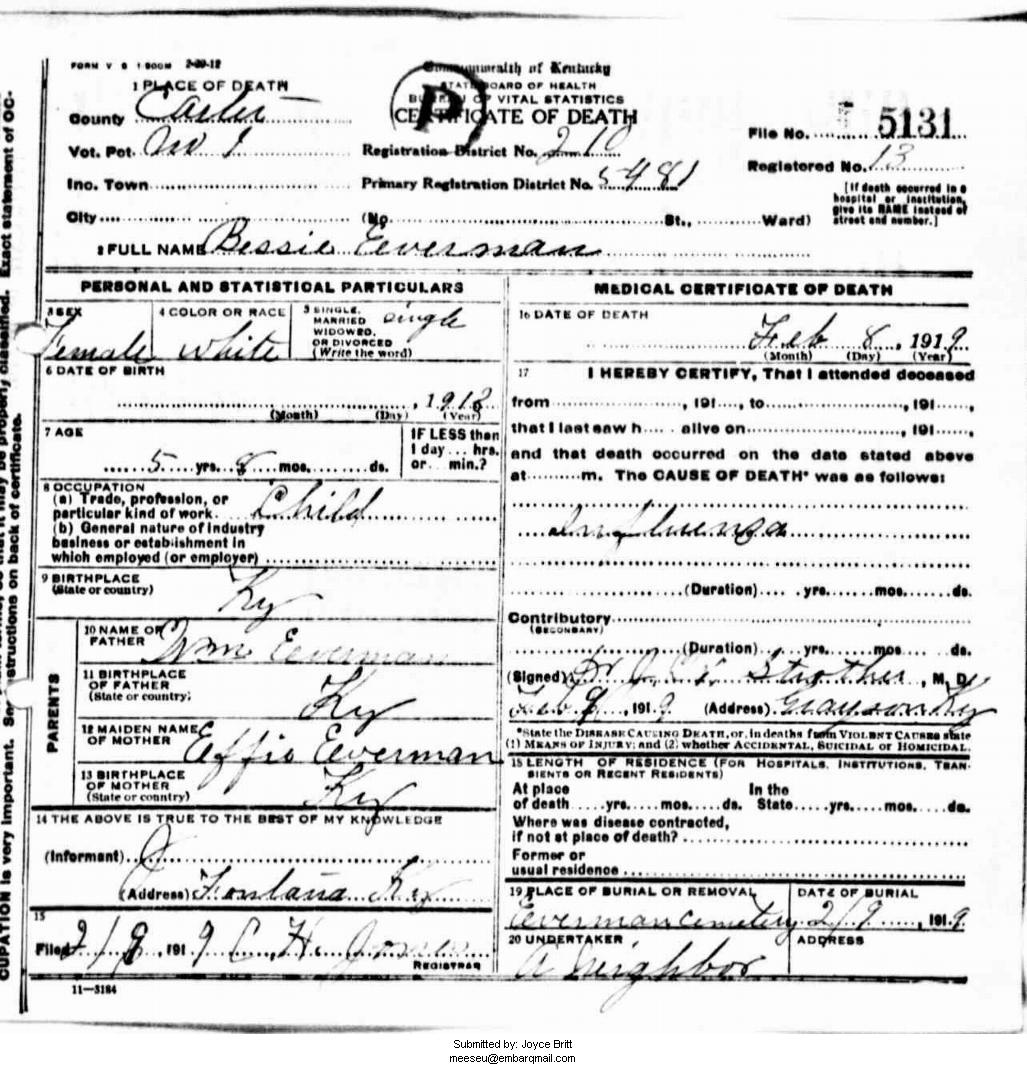 FORM V S 1 500M 2-20-12
Commonwealth of Kentucky
STATE BOARD OF HEALTH
BUREAU OF VITAL STATISTICS
CERTIFICATE OF DEATH
P
1 PLACE OF DEATH
County Carter
Vot. Pct. No 1
Inc. Town
City (No. St., Ward)
Registration District No. 210
Primary Registration District No. 5481
File No. 5131
Registered No. 13
[If death occurred in a hospital or institution, give its NAME instead of street and number.]
2 FULL NAME Bessie Eeverman
PERSONAL AND STATISTICAL PARTICULARS
3 SEX
Female
4 COLOR OR RACE
white
5 SINGLE, MARRIED WIDOWED, OR DIVORCED (Write the word)
single
6 DATE OF BIRTH
, 1913
(Month) (Day) (Year)
7 AGE
5 yrs. 8 mos. ds.
IF LESS than 1 day ... hrs. or ... min.?
8 OCCUPATION
(a) Trade, profession, or particular kind of work. Child
(b) General nature of industry business or establishment in which employed (or employer)
9 BIRTHPLACE
(State or country)
Ky
PARENTS
10 NAME OF FATHER
Wm Eeverman
11 BIRTHPLACE OF FATHER
(State or country)
Ky
12 MAIDEN NAME OF MOTHER
Eeffie Eeverman
13 BIRTHPLACE OF MOTHER
(State or country)
Ky
14 THE ABOVE IS TRUE TO THE BEST OF MY KNOWLEDGE
(Informant)
(Address) Fontana Ky
15
Filed 2/8 1919 C. H. Jones
REGISTRAR
11—3184
MEDICAL CERTIFICATE OF DEATH
16 DATE OF DEATH
Feb 8, 1919
(Month) (Day) (Year)
17 I HEREBY CERTIFY, That I attended deceased
from , 191 , to , 191 ,
that I last saw h alive on , 191 ,
and that death occurred on the date stated above
at m. The CAUSE OF DEATH* was as follows:
Influenza
(Duration) yrs. mos. ds.
Contributory
(SECONDARY)
(Duration) yrs. mos. ds.
(Signed) Dr J. Strother, M. D.
Feb 9, 1919 (Address) Grayson Ky
*State the DISEASE CAUSING DEATH, or, in deaths from VIOLENT CAUSES state
(1) MEANS OF INJURY; and (2) whether ACCIDENTAL, SUICIDAL OR HOMICIDAL.
18 LENGTH OF RESIDENCE (FOR HOSPITALS, INSTITUTIONS, TRANSIENTS OR RECENT RESIDENTS)
At place of death yrs. mos. ds. In the State yrs. mos. ds.
Where was disease contracted,
if not at place of death?
Former or
usual residence
19 PLACE OF BURIAL OR REMOVAL
Eeverman Cemetery
DATE OF BURIAL
2/9, 1919
20 UNDERTAKER
A Neighbor
ADDRESS
CUPATION is very important. See instructions on back of certificate.
may be properly classified. Exact statement of OC-
Submitted by: Joyce Britt
meeseu@embarqmail.com